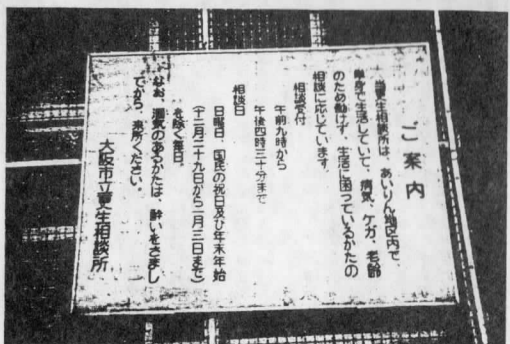 ご案内
当更生相談所は、あいりん地区内で、
単身で生活していて、病気、ケガ、老齢
のため働けず、生活に困っているかたの
相談に応じています。
相談受付
午前九時から
午後四時三十分まで
相談日
日曜日、国民の祝日及び年末年始
を除く毎日。
(十二月二十九日から一月三日まで)
なお、酒気のあるかたは、酔いをさまし
てから、来所ください。
大阪市立更生相談所